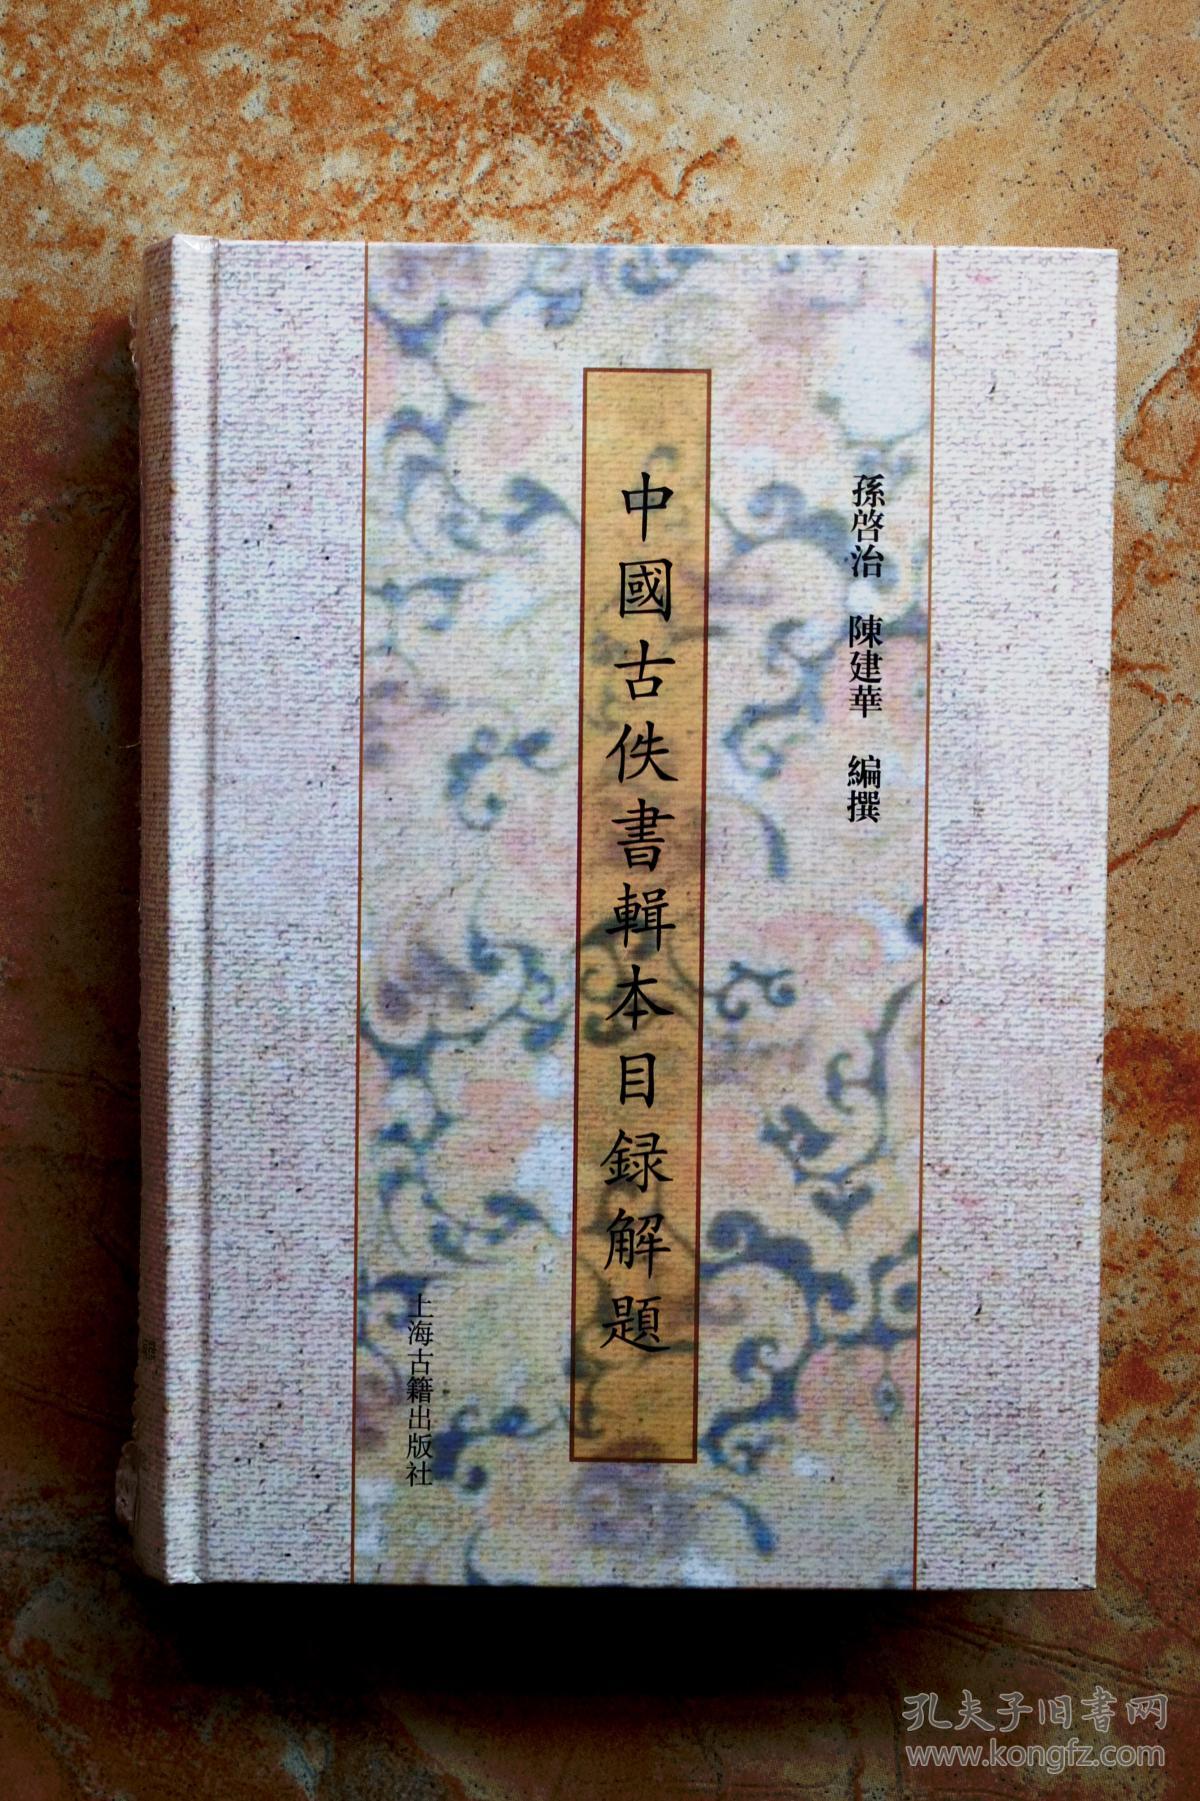 孫啓治 陳建華 編撰
中國古佚書輯本目録解題
上海古籍出版社
孔夫子旧书网
www.kongfz.com